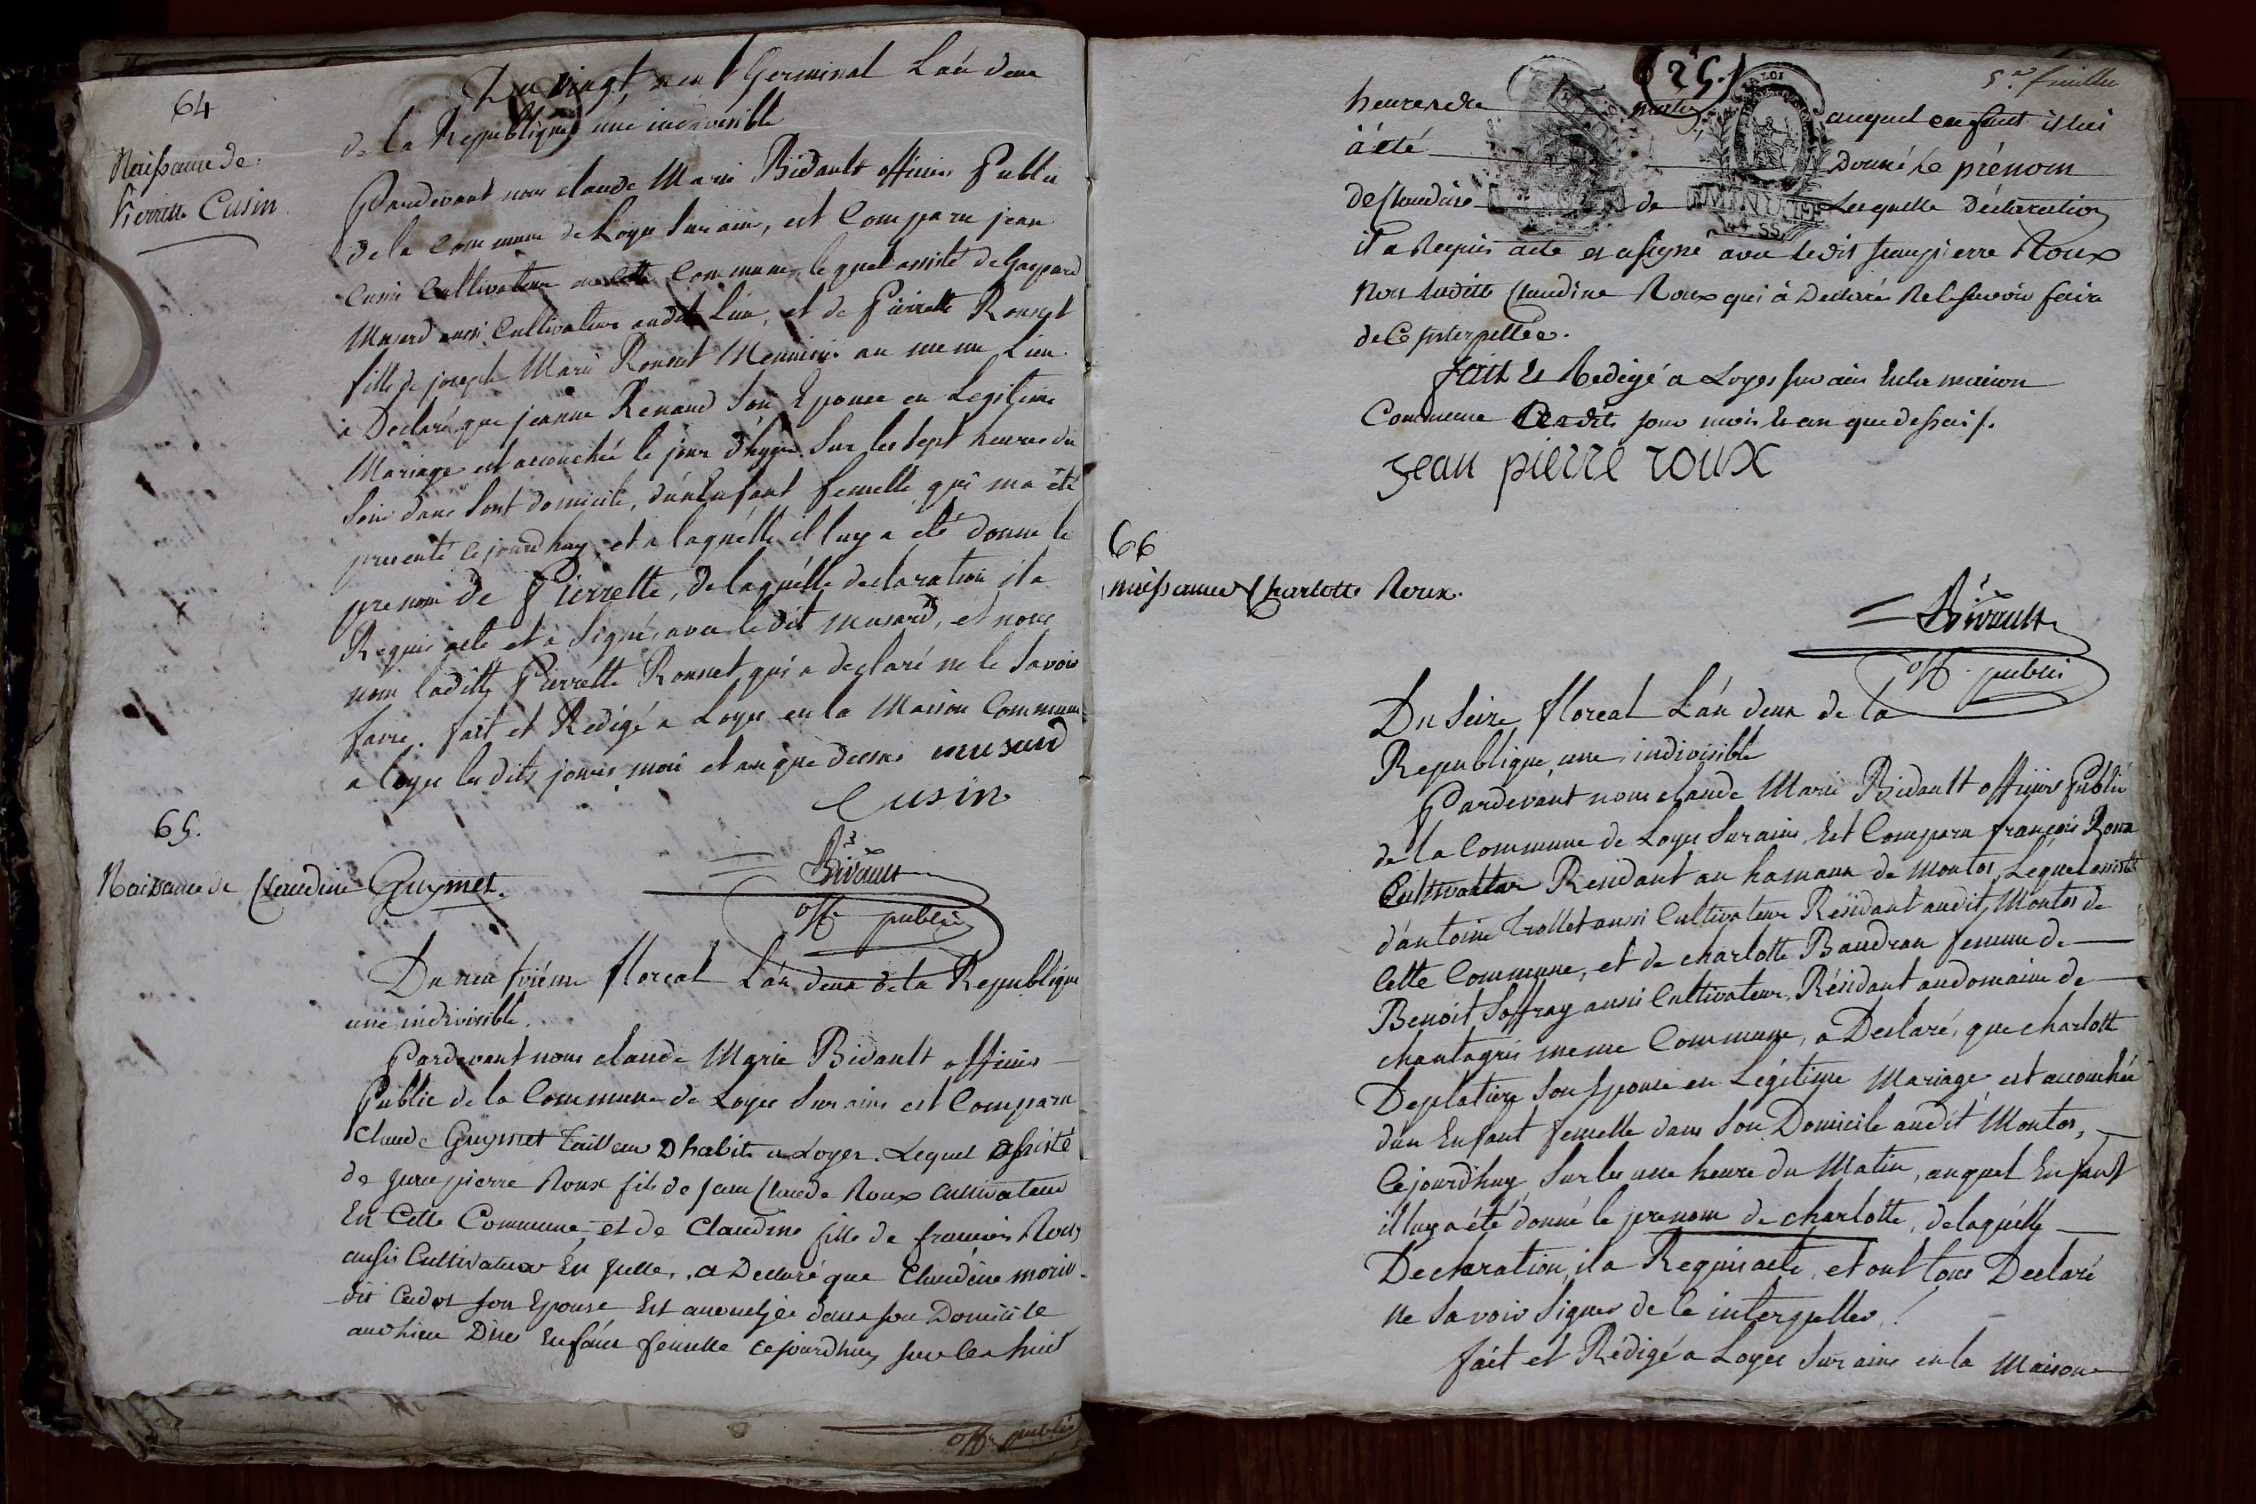 64
Naissance de
Pierrette Cusin
Du vingt neuf Germinal L'an deux
de la Republique une indivisible
Pardevant nous claude Marie Bidault officier Public
de la Commune de Loyes Sur ain, est Comparu jean
Cusin Cultivateur en cette Commune, lequel assisté de Gaspard
Musard aussi Cultivateur audit Lieu, et de Pierrette Rousset
fille de joseph Marie Rousset Meunier au meme Lieu
a Declaré que jeanne Renaud Son Epouse en Legitime
Mariage est accouchée le jour d'hyer Sur les Sept heures du
Soir dans Sont domicile, d'un Enfant femelle qui ma été
presenté cejourdhuy, et a laquelle il luy a eté donné le
prenom de Pierrette, de laquelle declaration il a
Requis acte et a Signé, avec ledit Musard, et nous
non laditte Pierrette Rousset qui a declaré ne le Savoir
faire. fait et Redigé a Loyes en la Maison Commune
a loyes les dits jours, mois et an que dessus musard
Cusin
Bidault
off. public
65.
Naissance de Claudine Guymet.
Du neuvième floreal L'an deux de la Republique
une indivisible.
Pardevant nous claude Marie Bidault officier
Public de la Commune de Loyes Sur ains est Comparu
Claude Guymet Tailleur D'habits a Loyes. Lequel assisté
de Jean pierre Roux fils de Jean Claude Roux cultivateur
En Cette Commune, et de Claudine fille de francois Roux
aussi Cultivateur En Icelle, a Declaré que Claudine morin
dit Cadet son Epouse Est accouchée dans son Domicile
audit lieu D'un Enfant femelle cejourdhuy sur les huit
off. public
25.
5.e feuillet
heures de matin auquel enfant il lui
à été donné le prénom
de Claudine de Laquelle Déclaration
il a Requis acte et a signé avec ledit Jean pierre Roux
Non laditte Claudine Roux qui à Declarée Ne le savoir faire
de Ce Interpellée.
fait Et Redigé a Loyes sur ain En la maison
Commune Lesdits jour mois et an que dessus.
jean pierre roux
66
naissance Charlotte Roux.
Bidault
off. public
Du Seize floreal L'an deux de la
Republique, une, indivisible
Pardevant nous claude Marie Bidault officier Public
de la Commune de Loyes Sur ains Est Comparu françois Roux
Cultivateur Residant au hamaux de Montos, Lequel assisté
d'antoine Trollet aussi Cultivateur Residant audit Montos de
Cette Commune, et de charlotte Baudran femme de
Benoit Soffray aussi Cultivateur, Résidant au domaine de
chantagris meme Commune, a Declaré, que charlotte
Deplatiere Son Epouse en Légitime Mariage est accouchée
d'un Enfant femelle dans Son Domicile audit Montos,
Cejourdhuy Sur les une heure du Matin, auquel Enfant
il luy a été donné le prenom de charlotte, de laquelle
Declaration, il a Requis acte, et ont tous Declaré
ne Savoir Signer de ce interpellés.
fait et Rédigé a Loyes Sur ains en la Maison